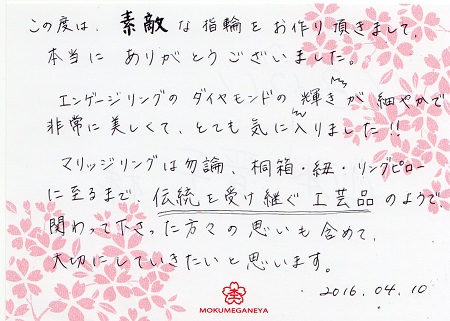 この度は、素敵な指輪をお作り頂きまして、
本当にありがとうございました。
エンゲージリングのダイヤモンドの輝きが細やかで
非常に美しくて、とても気に入りました!!
マリッジリングは勿論、桐箱・紐・リングピロー
に至るまで、伝統を受け継ぐ工芸品のようで、
関わって下さった方々の思いも含めて、
大切にしていきたいと思います。
2016.04.10
MOKUMEGANEYA